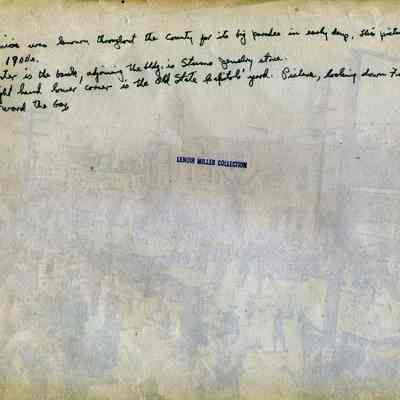 was known throughout the County for its big parades in early days, this pictu
1900s.
ter is the bank, adjoining the bldg. is Sturms Jewelry store.
ght hand lower corner is the Old State Capitols' yard. Picture, looking down Fi
ward the Bay
LENOIR MILLER COLLECTION